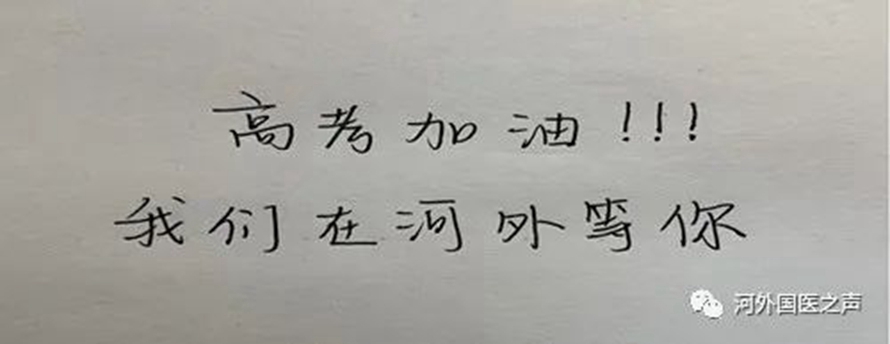 高考加油!!!
我们在河外等你
河外国医之声